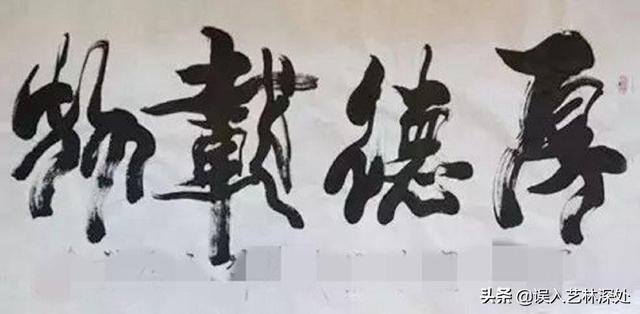 厚德載物
头条 @误入艺林深处